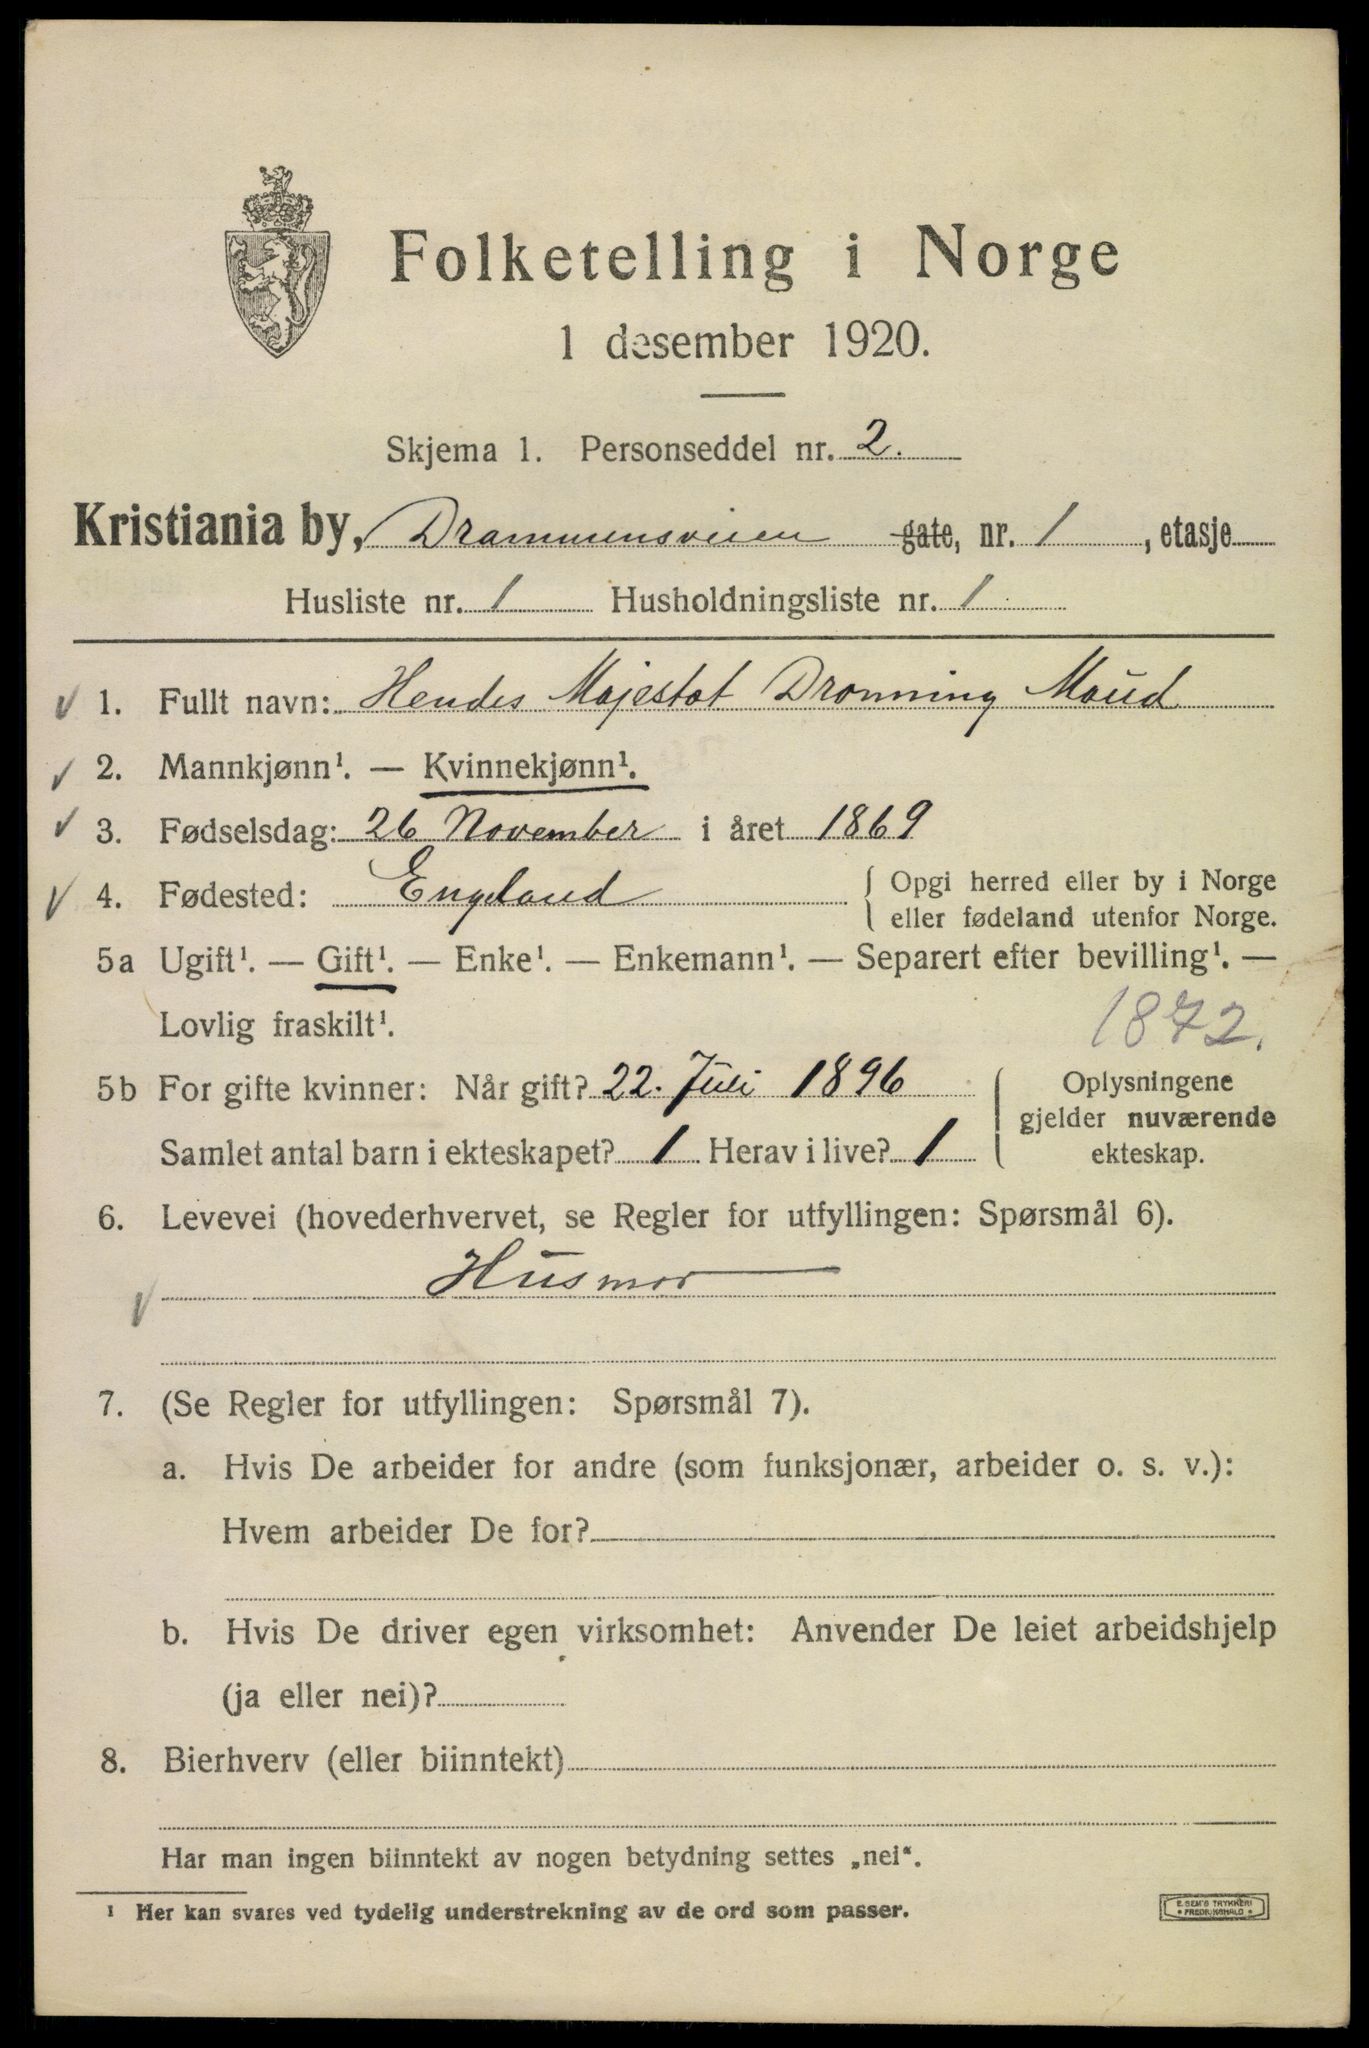 Folketelling i Norge
1 desember 1920.
Skjema 1. Personseddel nr. 2.
Kristiania by, Drammensveien gate, nr. 1, etasje
Husliste nr. 1 Husholdningsliste nr. 1
1. Fullt navn: Hendes Majestæt Dronning Maud
2. Mannkjønn¹. — Kvinnekjønn¹.
3. Fødselsdag: 26 November i året 1869
4. Fødested: Engeland { Opgi herred eller by i Norge
eller fødeland utenfor Norge.
5a Ugift¹. — Gift¹. — Enke¹. — Enkemann¹. — Separert efter bevilling¹. —
Lovlig fraskilt¹.
1872.
5b For gifte kvinner: Når gift? 22. Juli 1896
Samlet antal barn i ekteskapet? 1 Herav i live? 1
{ Oplysningene
gjelder nuværende
ekteskap.
6. Levevei (hovederhvervet, se Regler for utfyllingen: Spørsmål 6).
Husmor
7. (Se Regler for utfyllingen: Spørsmål 7).
a. Hvis De arbeider for andre (som funksjonær, arbeider o. s. v.):
Hvem arbeider De for?
b. Hvis De driver egen virksomhet: Anvender De leiet arbeidshjelp
(ja eller nei)?
8. Bierhverv (eller biinntekt)
Har man ingen biinntekt av nogen betydning settes „nei“.
¹ Her kan svares ved tydelig understrekning av de ord som passer.
E. SEM'S TRYKKERI
* FREDRIKSHALD *